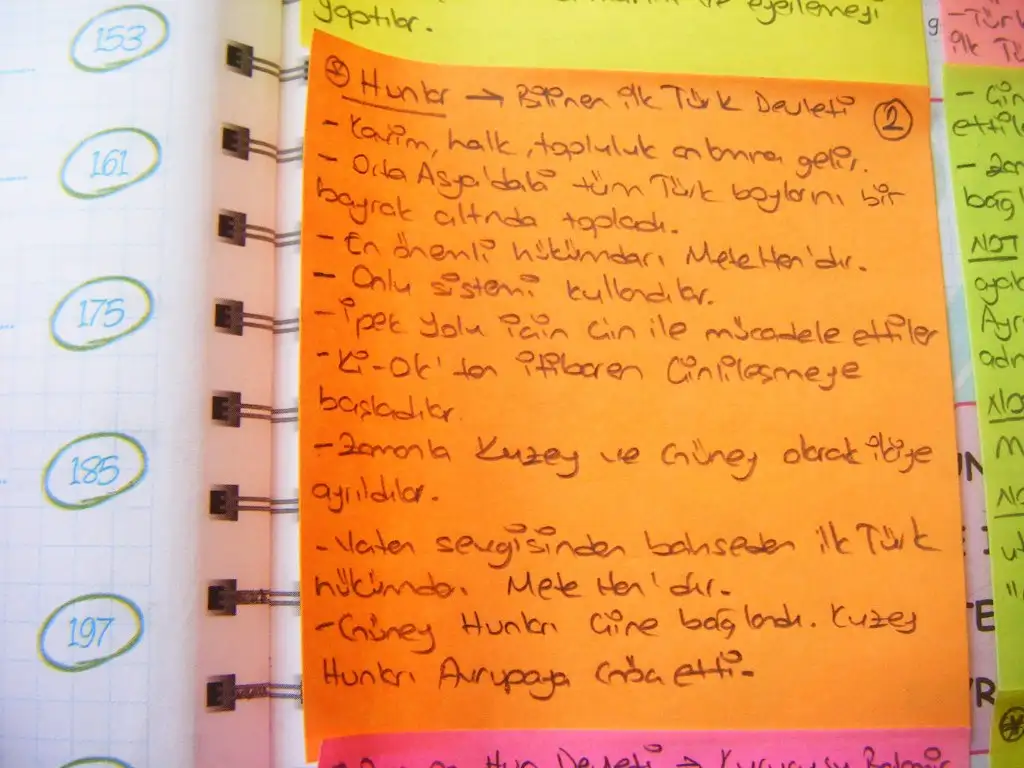 153
161
175
185
197
yaptılar.
Hunlar → Bilinen ilk Türk Devleti 2
- Kavim, halk, topluluk anlamına gelir.
- Orta Asya'daki tüm Türk boylarını bir
bayrak altında topladı.
- En önemli hükümdarı Mete Han'dır.
- Onlu sistemi kullandılar.
- İpek Yolu için Çin ile mücadele ettiler
- Ki-Ok'tan itibaren Çinlileşmeye
başladılar.
- Zamanla Kuzey ve Güney olarak ikiye
ayrıldılar.
- Vatan sevgisinden bahseden ilk Türk
hükümdarı Mete Han'dır.
- Güney Hunları Çine bağlandı. Kuzey
Hunları Avrupaya etti.
Hun Devleti → Kurucusu
- Türk
ilk
- Çin
NOT